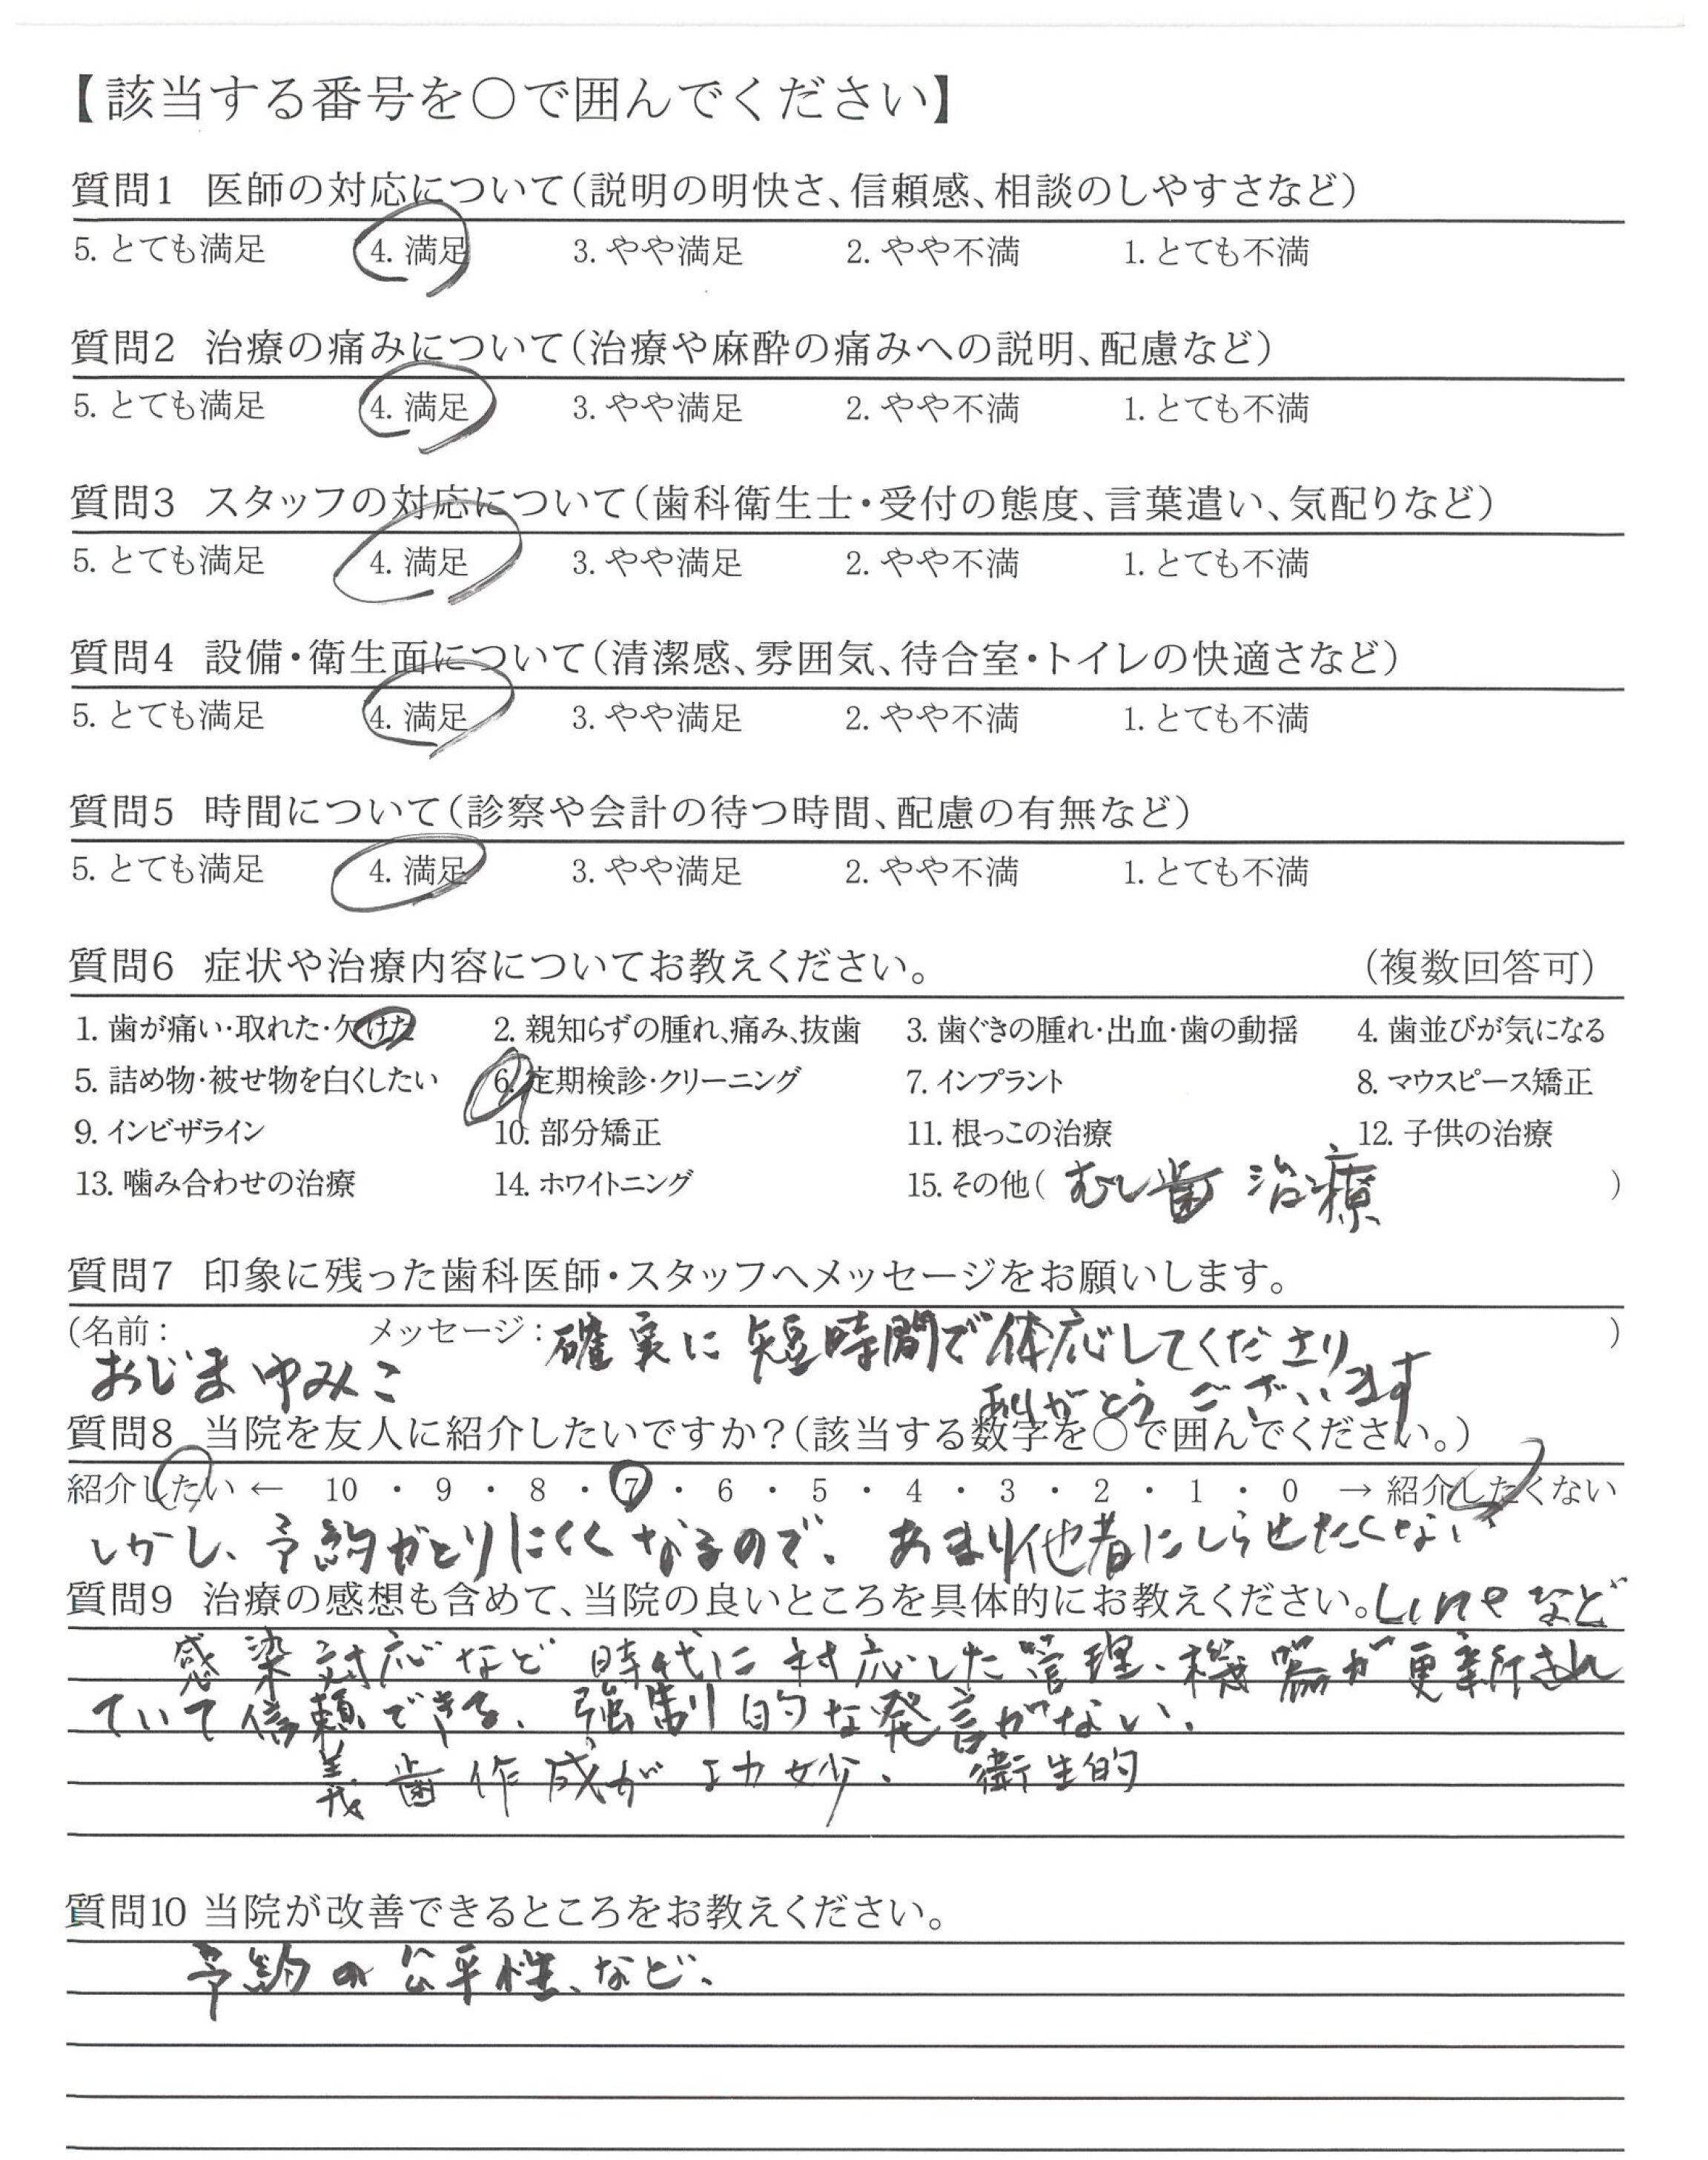 【該当する番号を○で囲んでください】
質問1 医師の対応について(説明の明快さ、信頼感、相談のしやすさなど)
5. とても満足 4. 満足 3. やや満足 2. やや不満 1. とても不満
質問2 治療の痛みについて(治療や麻酔の痛みへの説明、配慮など)
5. とても満足 4. 満足 3. やや満足 2. やや不満 1. とても不満
質問3 スタッフの対応について(歯科衛生士・受付の態度、言葉遣い、気配りなど)
5. とても満足 4. 満足 3. やや満足 2. やや不満 1. とても不満
質問4 設備・衛生面について(清潔感、雰囲気、待合室・トイレの快適さなど)
5. とても満足 4. 満足 3. やや満足 2. やや不満 1. とても不満
質問5 時間について(診察や会計の待つ時間、配慮の有無など)
5. とても満足 4. 満足 3. やや満足 2. やや不満 1. とても不満
質問6 症状や治療内容についてお教えください。 (複数回答可)
1. 歯が痛い・取れた・欠けた 2. 親知らずの腫れ、痛み、抜歯 3. 歯ぐきの腫れ・出血・歯の動揺 4. 歯並びが気になる
5. 詰め物・被せ物を白くしたい 6. 定期検診・クリーニング 7. インプラント 8. マウスピース矯正
9. インビザライン 10. 部分矯正 11. 根っこの治療 12. 子供の治療
13. 噛み合わせの治療 14. ホワイトニング 15. その他( むし歯 治療 )
質問7 印象に残った歯科医師・スタッフへメッセージをお願いします。
(名前: メッセージ: 確実に短時間で体応してくださり )
おじまゆみこ
ありがとうございます
質問8 当院を友人に紹介したいですか?(該当する数字を○で囲んでください。)
紹介したい ← 10 ・ 9 ・ 8 ・ 7 ・ 6 ・ 5 ・ 4 ・ 3 ・ 2 ・ 1 ・ 0 → 紹介したくない
しかし、予約がとりにくくなるので、あまり他者にしらせたくない
質問9 治療の感想も含めて、当院の良いところを具体的にお教えください。Lineなど
感染対応など 時代に対応した管理、機器が更新され
ていて信頼できる、強制的な発言がない、
義歯作成が功妙、衛生的
質問10 当院が改善できるところをお教えください。
予約の公平性、など、